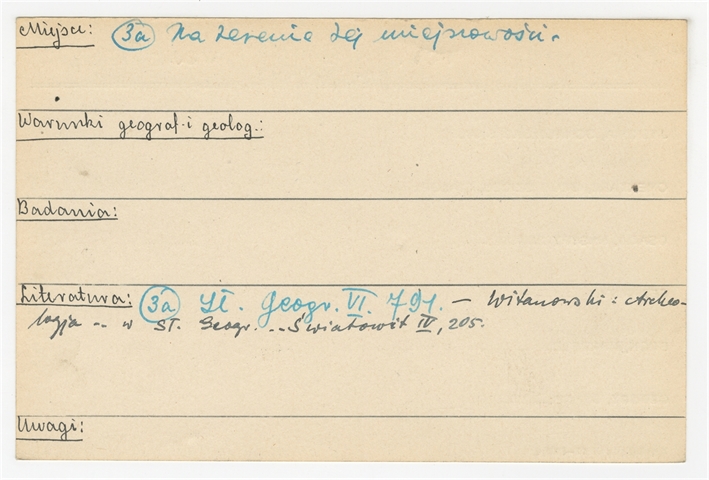 Miejsce: 3a Na terenie tej miejscowości.
Warunki geograf. i geolog.:
Badania:
Literatura: 3a Sł. Geogr. VI. 791. – Witanowski: Archeo-
logja .. w Sł. Geogr. .. Światowit IV, 205.
Uwagi: